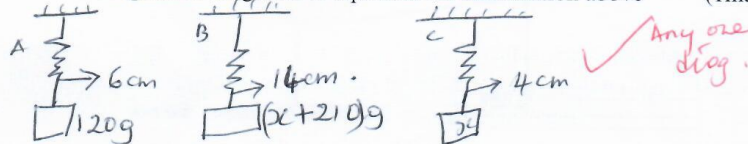 A
6cm
120g
B
14cm.
(x+210)g
C
4cm
x
Any one
diag.